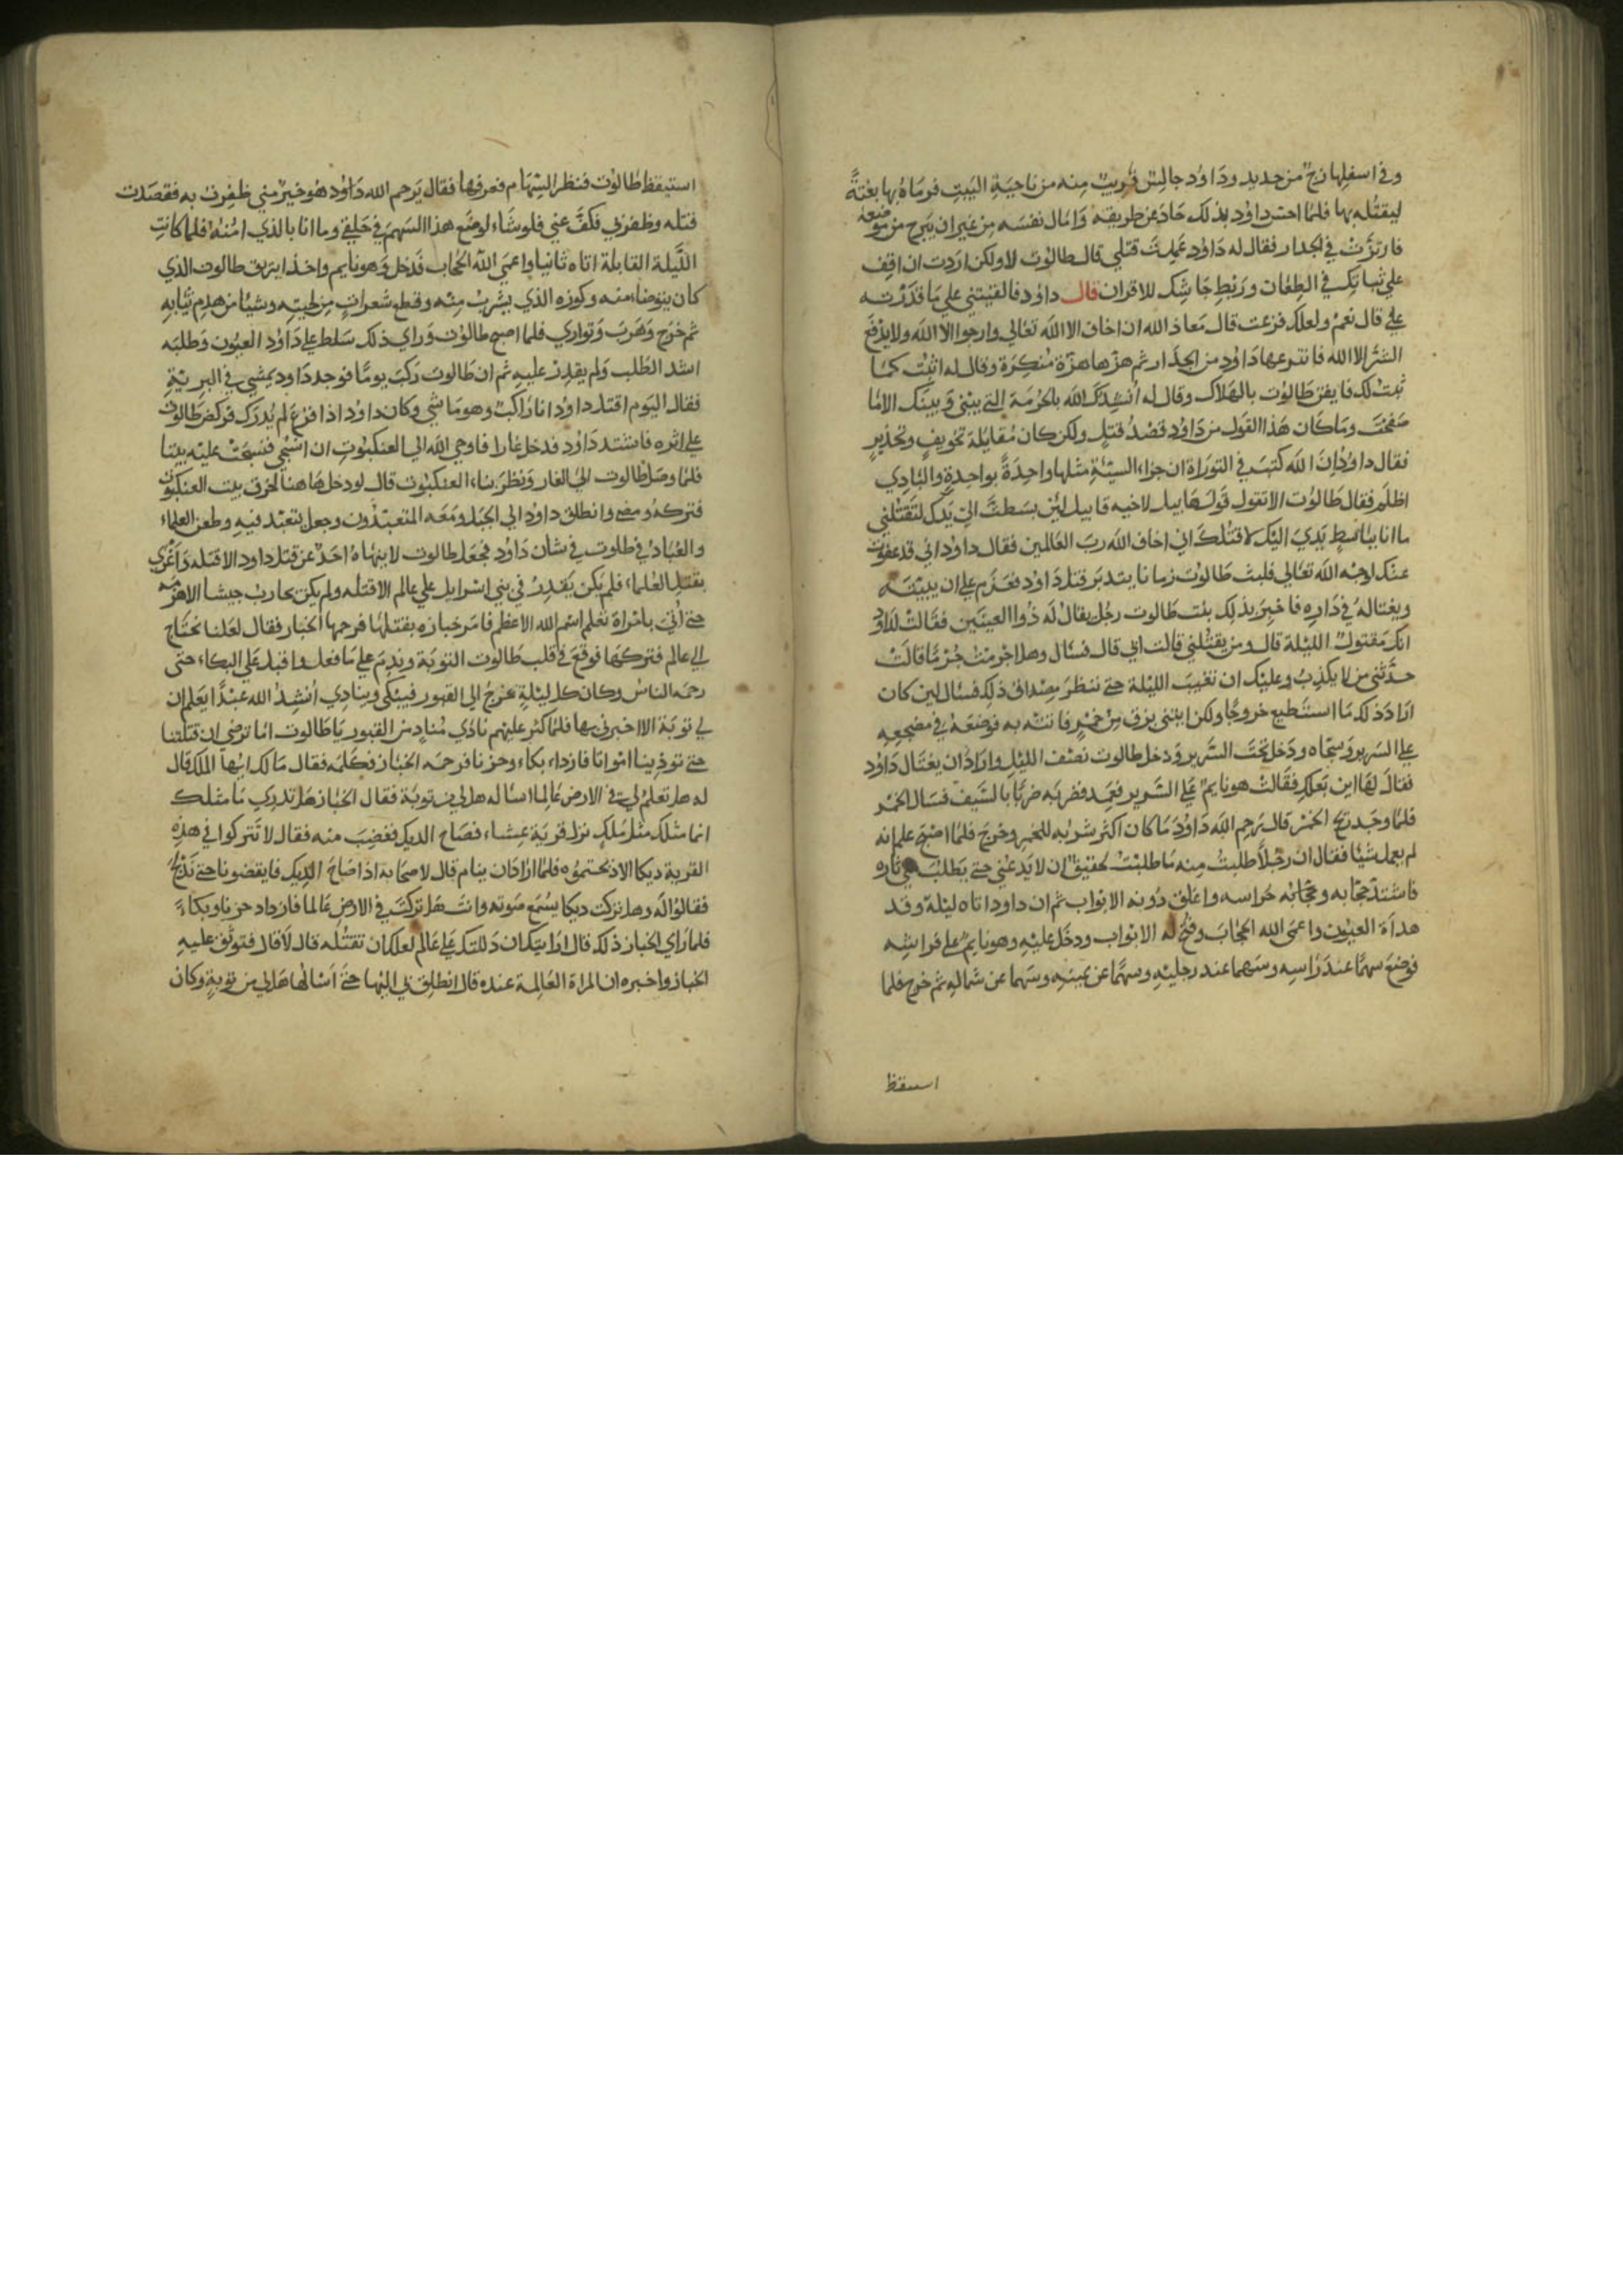 وفي اسفلها زج من حديد وداود جالس قريب منه من ناحية البيت فرماه بها بغتةً
ليقتله بها فلما احس داود بذلك حاد عن طريقه وامال نفسه من غير ان يبرح من موضعه
فارتزت في الجدار فقال له داود عملت قتلي قال طالوت لا ولكن اردت ان اقف
علي ثباتك في الطعان وربط جاشك للاقران قال داود فالفيتني علي ما قدرته
علي قال نعم ولعلك فزعت قال معاذ الله ان اخاف الا الله تعالي وارجوا الا الله ولا يدفع
الشر الا الله فانتزعها داود من الجدار ثم هزها هزة منكرة وقال له اثبت كما
ثبت لك فايقن طالوت بالهلاك وقال له انشدك الله بالحرمة التي بيني وبينك الا ما
صفحت وما كان هذا القول من داود قصد قتل ولكن كان مقابلة تخويف وتحذير
فقال داود ان الله كتب في التوراة ان جزاء السيئة مثلها واحدة بواحدة والبادي
اظلم فقال طالوت الا تقول قول هابيل لاخيه قابيل لئن بسطت الي يدك لتقتلني
ما انا بباسط يدي اليك لاقتلك اني اخاف الله رب العالمين فقال داود اني قد عفوت
عنك لوجه الله تعالي فلبث طالوت زمانا يتدبر قتل داود فعزم علي ان يبيته
ويغتاله في داره فاخبر بذلك بنت طالوت رجل يقال له ذوا العينين فقالت لداود
انك مقتول الليلة قال ومن يقتلني قالت ابي قال فسال وهل اجرمت جرما قالت
حدثني من لا يكذب وعليك ان تغيب الليلة حتي تنظر مصداق ذلك فسال لين كان
اراد ذلك ما استطيع خروجا ولكن ايتني بزق من خمر فاتته به فوضعه في مضجعه
علي السرير وسجاه ودخل تحت السرير ودخل طالوت نصف الليل واراد ان يغتال داود
فقال لها اين بعلك فقالت هو نايم علي السرير فعمد فضربه ضربا بالسيف فسال الخمر
فلما وجد ريح الخمر قال يرحم الله داود ما كان اكثر شربه للخمر وخرج فلما اصبح علم انه
لم يعمل شيا فقال ان رجلا طلبت منه ما طلبت لحقيق ان لا يدعني حتي يطلب مني ثاره
فاشتد حجابه وحجابه حراسه واغلق دونه الابواب ثم ان داود اتاه ليلة وقد
هدأة العيون واعمي الله الحجاب وفتح له الابواب ودخل عليه وهو نايم علي فراشه
فوضع سهما عند راسه وسهما عند رجليه وسهما عن يمينه وسهما عن شماله ثم خرج فلما
استيقظ
استيقظ طالوت فنظر السهام فعرفها فقال يرحم الله داود هو خير مني ظفرت به فقصدت
قتله وظفر بي فكف عني فلو شاء لوضع هذا السهم في حلقي وما انا بالذي امنه فلما كانت
الليلة القابلة اتاه ثانيا واعمي الله الحجاب فدخل وهو نايم واخذ ابريق طالوت الذي
كان يتوضا منه وكوزه الذي يشرب منه وقطع شعرات من لحيته وشيا من هدم ثيابه
ثم خرج وهرب وتواري فلما اصبح طالوت وراي ذلك سلط علي داود العيون وطلبه
اشد الطلب ولم يقدر عليه ثم ان طالوت ركب يوما فوجد داود يمشي في البرية
فقال اليوم اقتل داود انا راكب وهو ماشي وكان داود اذا فزع لم يدرك فركض طالوت
علي اثره فاشتد داود فدخل غارا فاوحي الله الي العنكبوت ان انسجي فنسجت عليه بيتا
فلما وصل طالوت الي الغار ونظر بناء العنكبوت قال لو دخل هاهنا لخرق بيت العنكبوت
فتركه ومضي وانطلق داود الي الجبل ومعه المتعبدون وجعل يتعبد فيه وطعن العلماء
والعباد في طالوت في شان داود فجعل طالوت لا ينهاه احد عن قتل داود الا قتله واغري
بقتل العلماء فلم يكن يقدر في بني اسرايل علي عالم الا قتله ولم يكن يحارب جيشا الا هزمه
حتي أتي بامراة تعلم اسم الله الاعظم فامر خبازه بقتلها فرحمها الخباز فقال لعلنا نحتاج
الي عالم فتركها فوقع في قلب طالوت التوبة وندم علي ما فعل واقبل علي البكاء حتي
رحمه الناس وكان كل ليلة يخرج الي القبور فيبكي وينادي انشد الله عبدا يعلم ان
لي توبة الا اخبرني بها فلما كثر عليهم نادي مناد من القبور يا طالوت اما ترضي ان قتلتنا
حتي توذينا امواتا فازداد بكاء وحزنا فرحمه الخباز فكلمه فقال مالك ايها الملك قال
له هل تعلم لي في الارض عالما اساله هل لي من توبة فقال الخباز هل تدري ما مثلك
انما مثلك مثل ملك نزل قرية عشاء فصاح الديك فغضب منه فقال لا تتركوا في هذه
القرية ديكا الا ذبحتموه فلما اراد ان ينام قال لاصحابه اذا صاح الديك فايقضونا حتي ندلج
فقالوا له وهل تركت ديكا يسمع صوته وانت هل تركت في الارض عالما فازداد حزنا وبكاءً
فلما راي الخباز ذلك قال ارايتك ان دللتك علي عالم لعلك ان تقتله قال لا قال فتوثق عليه
الخباز واخبره ان المراة العالمة عنده قال انطلق بي اليها حتي اسالها هل لي من توبة وكان